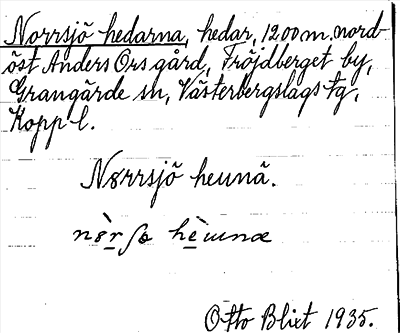 Norrsjö hedarna, hedar, 1200 m. nord-
öst Anders Ors gård, Fröjdberget by,
Grangärde sn, Västerbergslags tg,
Kopp l.
Nørrsjö heunä.
Otto Blixt 1935.